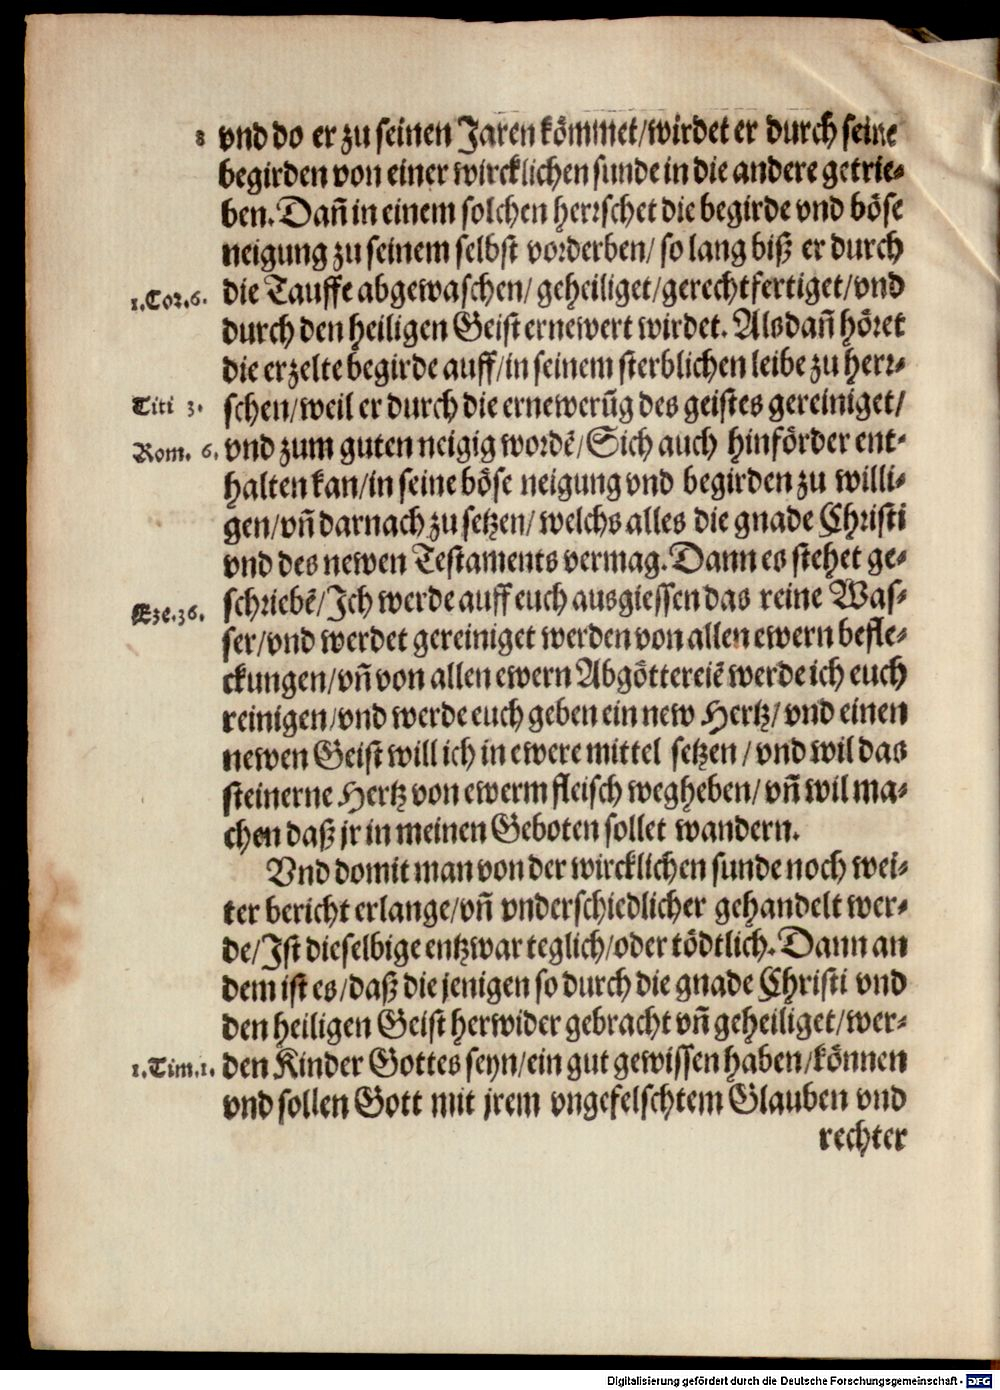 8 vnd do er zu seinen Jaren kömmet/wirdet er durch seine
begirden von einer wircklichen sunde in die andere getrie-
ben. Dañ in einem solchen herrschet die begirde vnd böse
neigung zu seinem selbst vorderben/ so lang biß er durch
1.Cor.6. die Tauffe abgewaschen/ geheiliget/gerechtfertiget/vnd
durch den heiligen Geist ernewert wirdet. Alsdañ höret
die erzelte begirde auff/in seinem sterblichen leibe zu herr-
Titi 3. schen/weil er durch die ernewerūg des geistes gereiniget/
Rom. 6. vnd zum guten neigig wordē/Sich auch hinförder ent-
halten kan/in seine böse neigung vnd begirden zu willi-
gen/vñ darnach zu setzen/ welchs alles die gnade Christi
vnd des newen Testaments vermag. Dann es stehet ge-
Eze.36. schriebē/Ich werde auff euch ausgiessen das reine Was-
ser/vnd werdet gereiniget werden von allen ewern befle-
ckungen/vñ von allen ewern Abgöttereiē werde ich euch
reinigen/vnd werde euch geben ein new Hertz/ vnd einen
newen Geist will ich in ewere mittel setzen/ vnd wil das
steinerne Hertz von ewerm fleisch wegheben/ vñ wil ma-
chen daß jr in meinen Geboten sollet wandern.
Vnd domit man von der wircklichen sunde noch wei-
ter bericht erlange/vñ vnderschiedlicher gehandelt wer-
de/Ist dieselbige entzwar teglich/oder tödtlich. Dann an
dem ist es/daß die jenigen so durch die gnade Christi vnd
den heiligen Geist herwider gebracht vñ geheiliget/wer-
1.Tim.1. den Kinder Gottes seyn/ein gut gewissen haben/können
vnd sollen Gott mit jrem vngefelschtem Glauben vnd
rechter
Digitalisierung gefördert durch die Deutsche Forschungsgemeinschaft - DFG